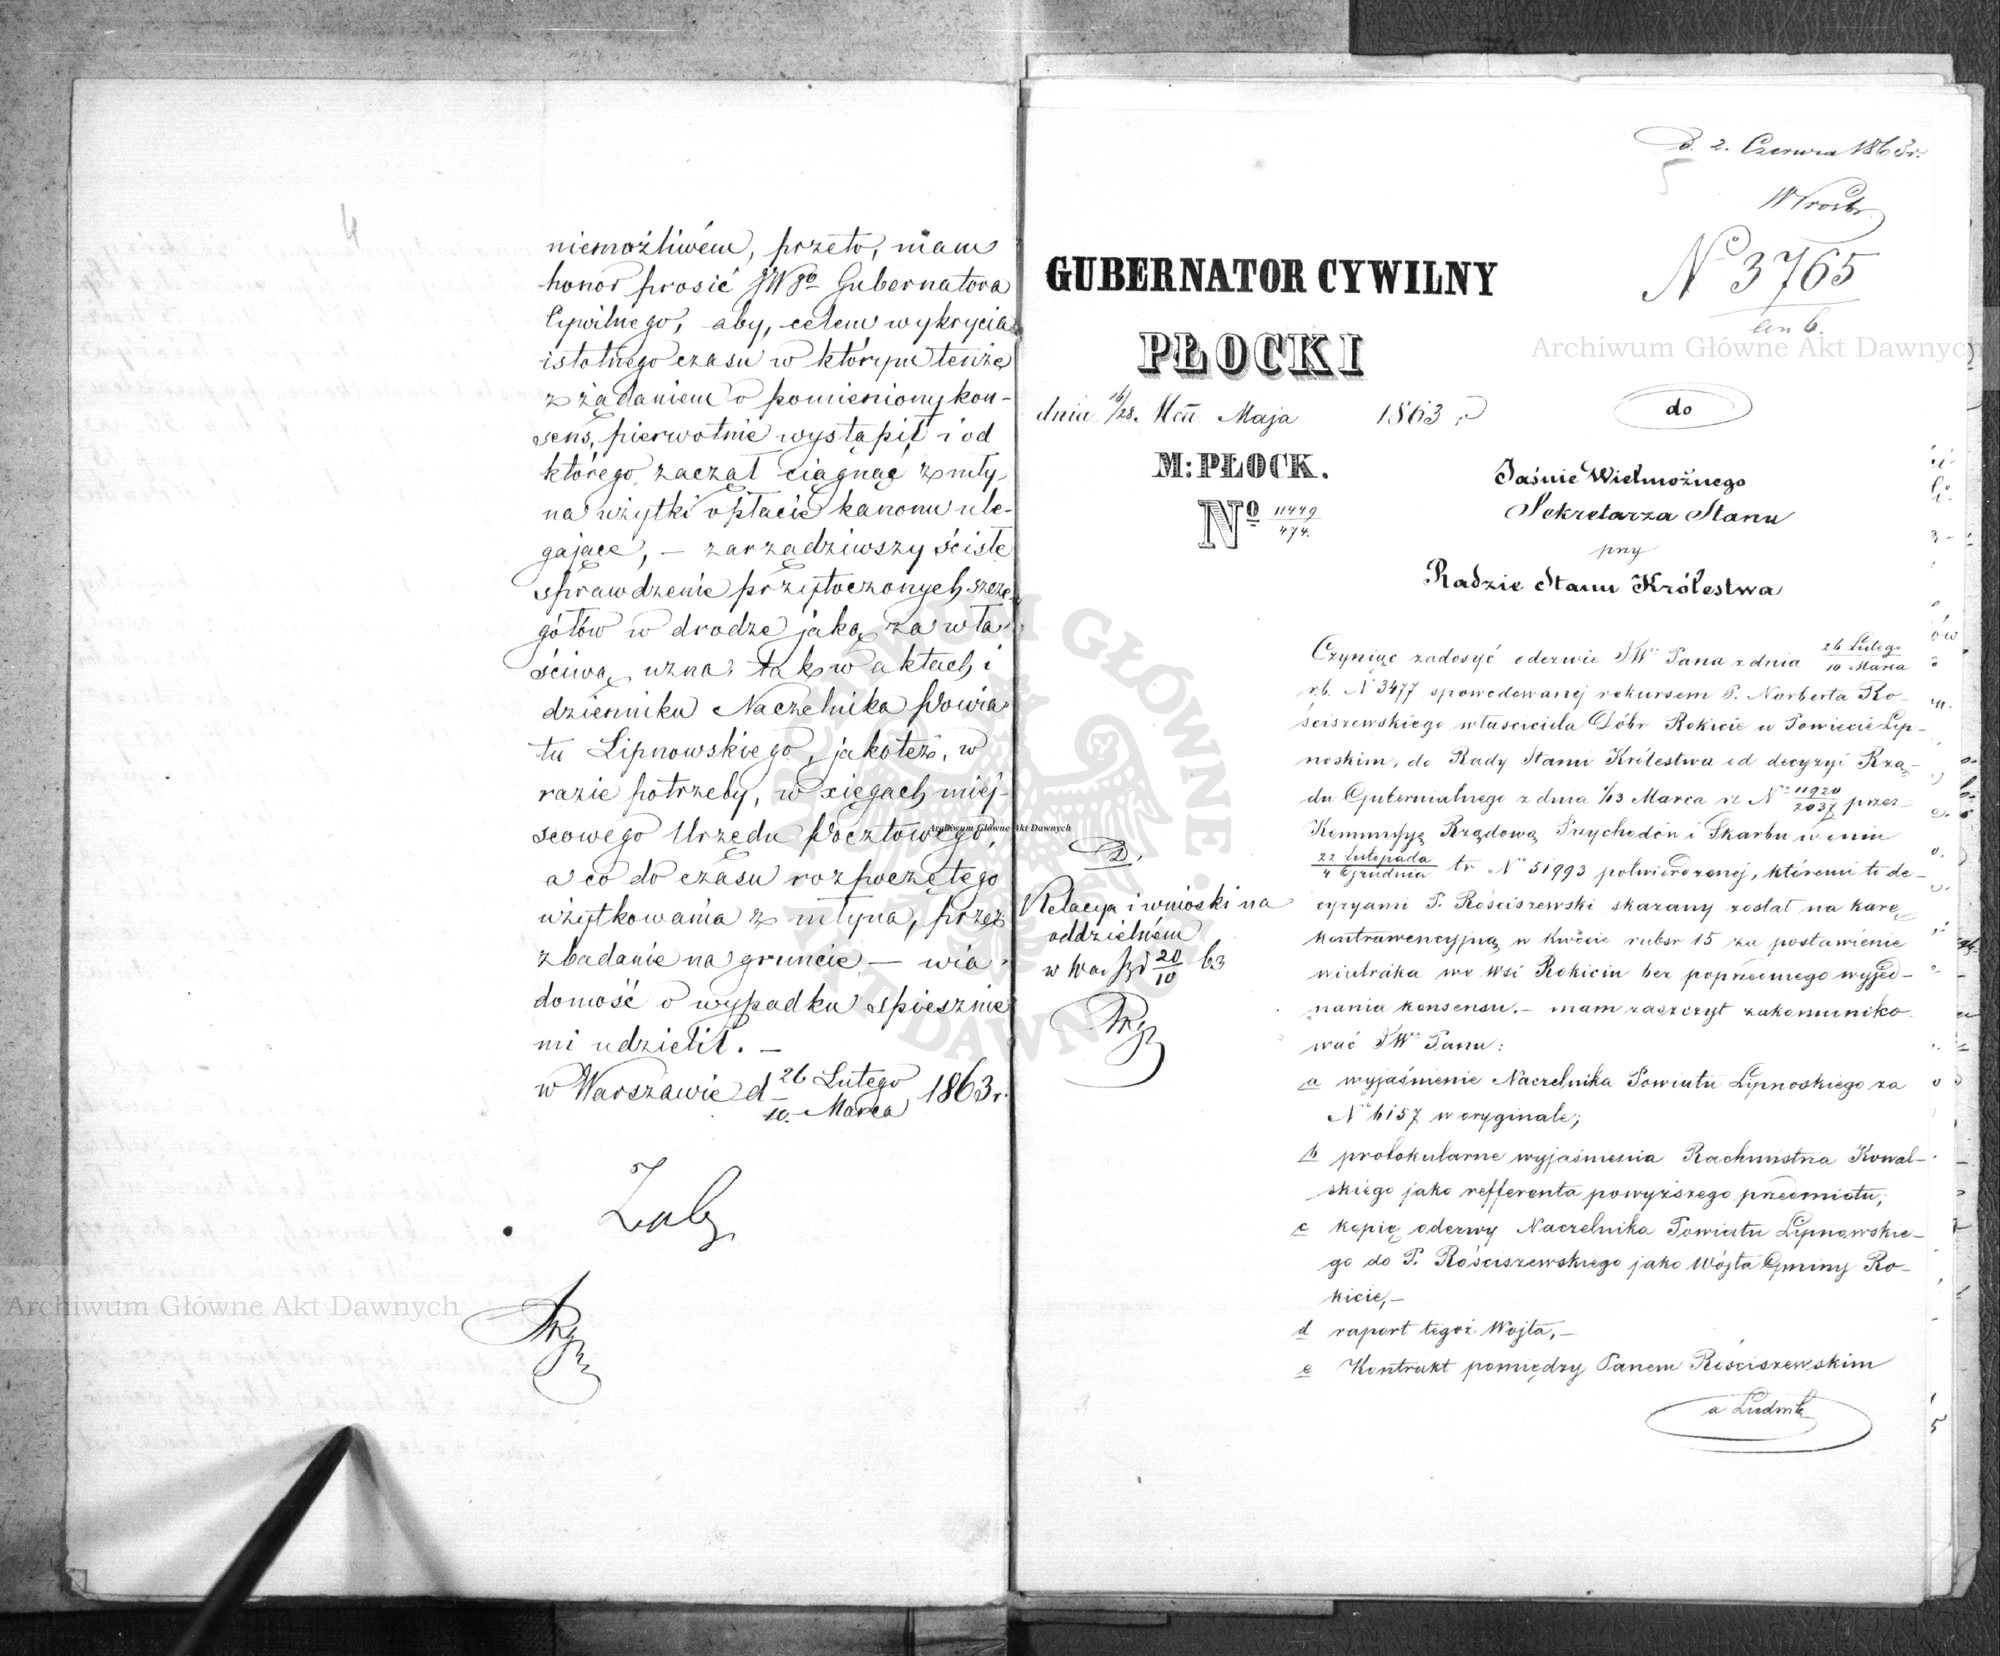 niemożliwém, przeto, mam
honor prosić JWgo Gubernatora
Cywilnego, aby, celem wykrycia
istotnego czasu w którym tenże
z żądaniem o pomieniony kon-
sens, pierwotnie wystąpił, i od
którego zaczął ciągnąć z mły-
na użytki opłacie kanonu ule-
gające, — zarządziwszy ścisłe
sprawdzenie przytoczonych szcze-
gółów w drodze jaką za wła-
ściwą uzna, tak w aktach i
dzienniku Naczelnika Powia-
tu Lipnowskiego, jakotéż, w
razie potrzeby, w xięgach miéj-
scowego Urzędu Pocztowego,
a co do czasu rozpoczętego
użytkowania z młyna, przez
zbadanie na gruncie — wia-
domość o wypadku spiesznie
mi udzielił. —
w Warszawie d 26 Lutego / 10. Marca 1863 r.
d. 2. Czerwca 1863 r.
No 3765
GUBERNATOR CYWILNY
PŁOCKI
dnia 16/28. Mca Maja 1863 r
M: PŁOCK.
No 11449/474.
do
Jaśnie Wielmożnego
Sekretarza Stanu
przy
Radzie Stanu Królestwa
Czyniąc zadosyć odezwie JWo Pana z dnia 26 Lutego / 10 Marca
r.b. N 3477 spowodowanej rekursem P. Norberta Ro-
ściszewskiego właściciela Dóbr Rokicie w Powiecie Lip-
noskim, do Rady Stanu Królestwa od decyzyi Rzą-
du Gubernialnego z dnia 1/13 Marca rz No 11920/2037 przez
Kommissyę Rządową Przychodów i Skarbu w dniu
22 Listopada / 4 Grudnia tr No 51993 potwierdzonej, któremi to de-
cyzyami P. Rościszewski skazany został na karę
kontrawencyjną w kwocie rubsr 15 za postawienie
wiatraka we wsi Rokiciu bez poprzedniego wyjed-
nania konsensu. — mam zaszczyt zakomuniko-
wać JWo Panu:
a wyjaśnienie Naczelnika Powiatu Lipnoskiego za
No 6157 w oryginale;
b protokularne wyjaśnienia Rachmistrza Kowal-
skiego jako refferenta powyższego przedmiotu;
c kopię odezwy Naczelnika Powiatu Lipnowskie-
go do P. Rościszewskiego jako Wójta Gminy Ro-
kicie, —
d raport tegoż Wójta, —
e Kontrakt pomiędzy Panem Rościszewskim
a Ludwik
D.
Relacya i wnioski na
oddzielném
20/10 63
Archiwum Główne Akt Dawnych
Archiwum Główne Akt Dawnych
Archiwum Główne Akt Dawnych
ARCHIWUM GŁÓWNE AKT DAWNYCH